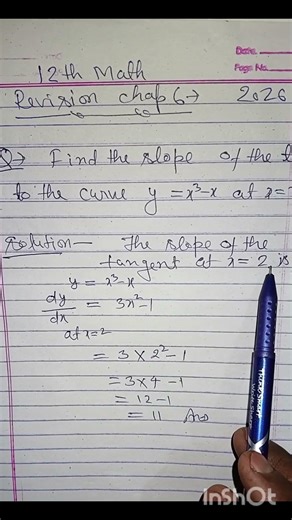 Date.
Page No.
12th Math
Revision chap 6→ 2026
Q→ Find the slope of the
to the curve y = x³-x at x=
Solution— The slope of the
tangent at x = 2 is
y = x³-x
dy/dx = 3x²-1
at x=2
= 3 × 2² - 1
= 3×4 -1
= 12 -1
= 11 Ans
InShOt